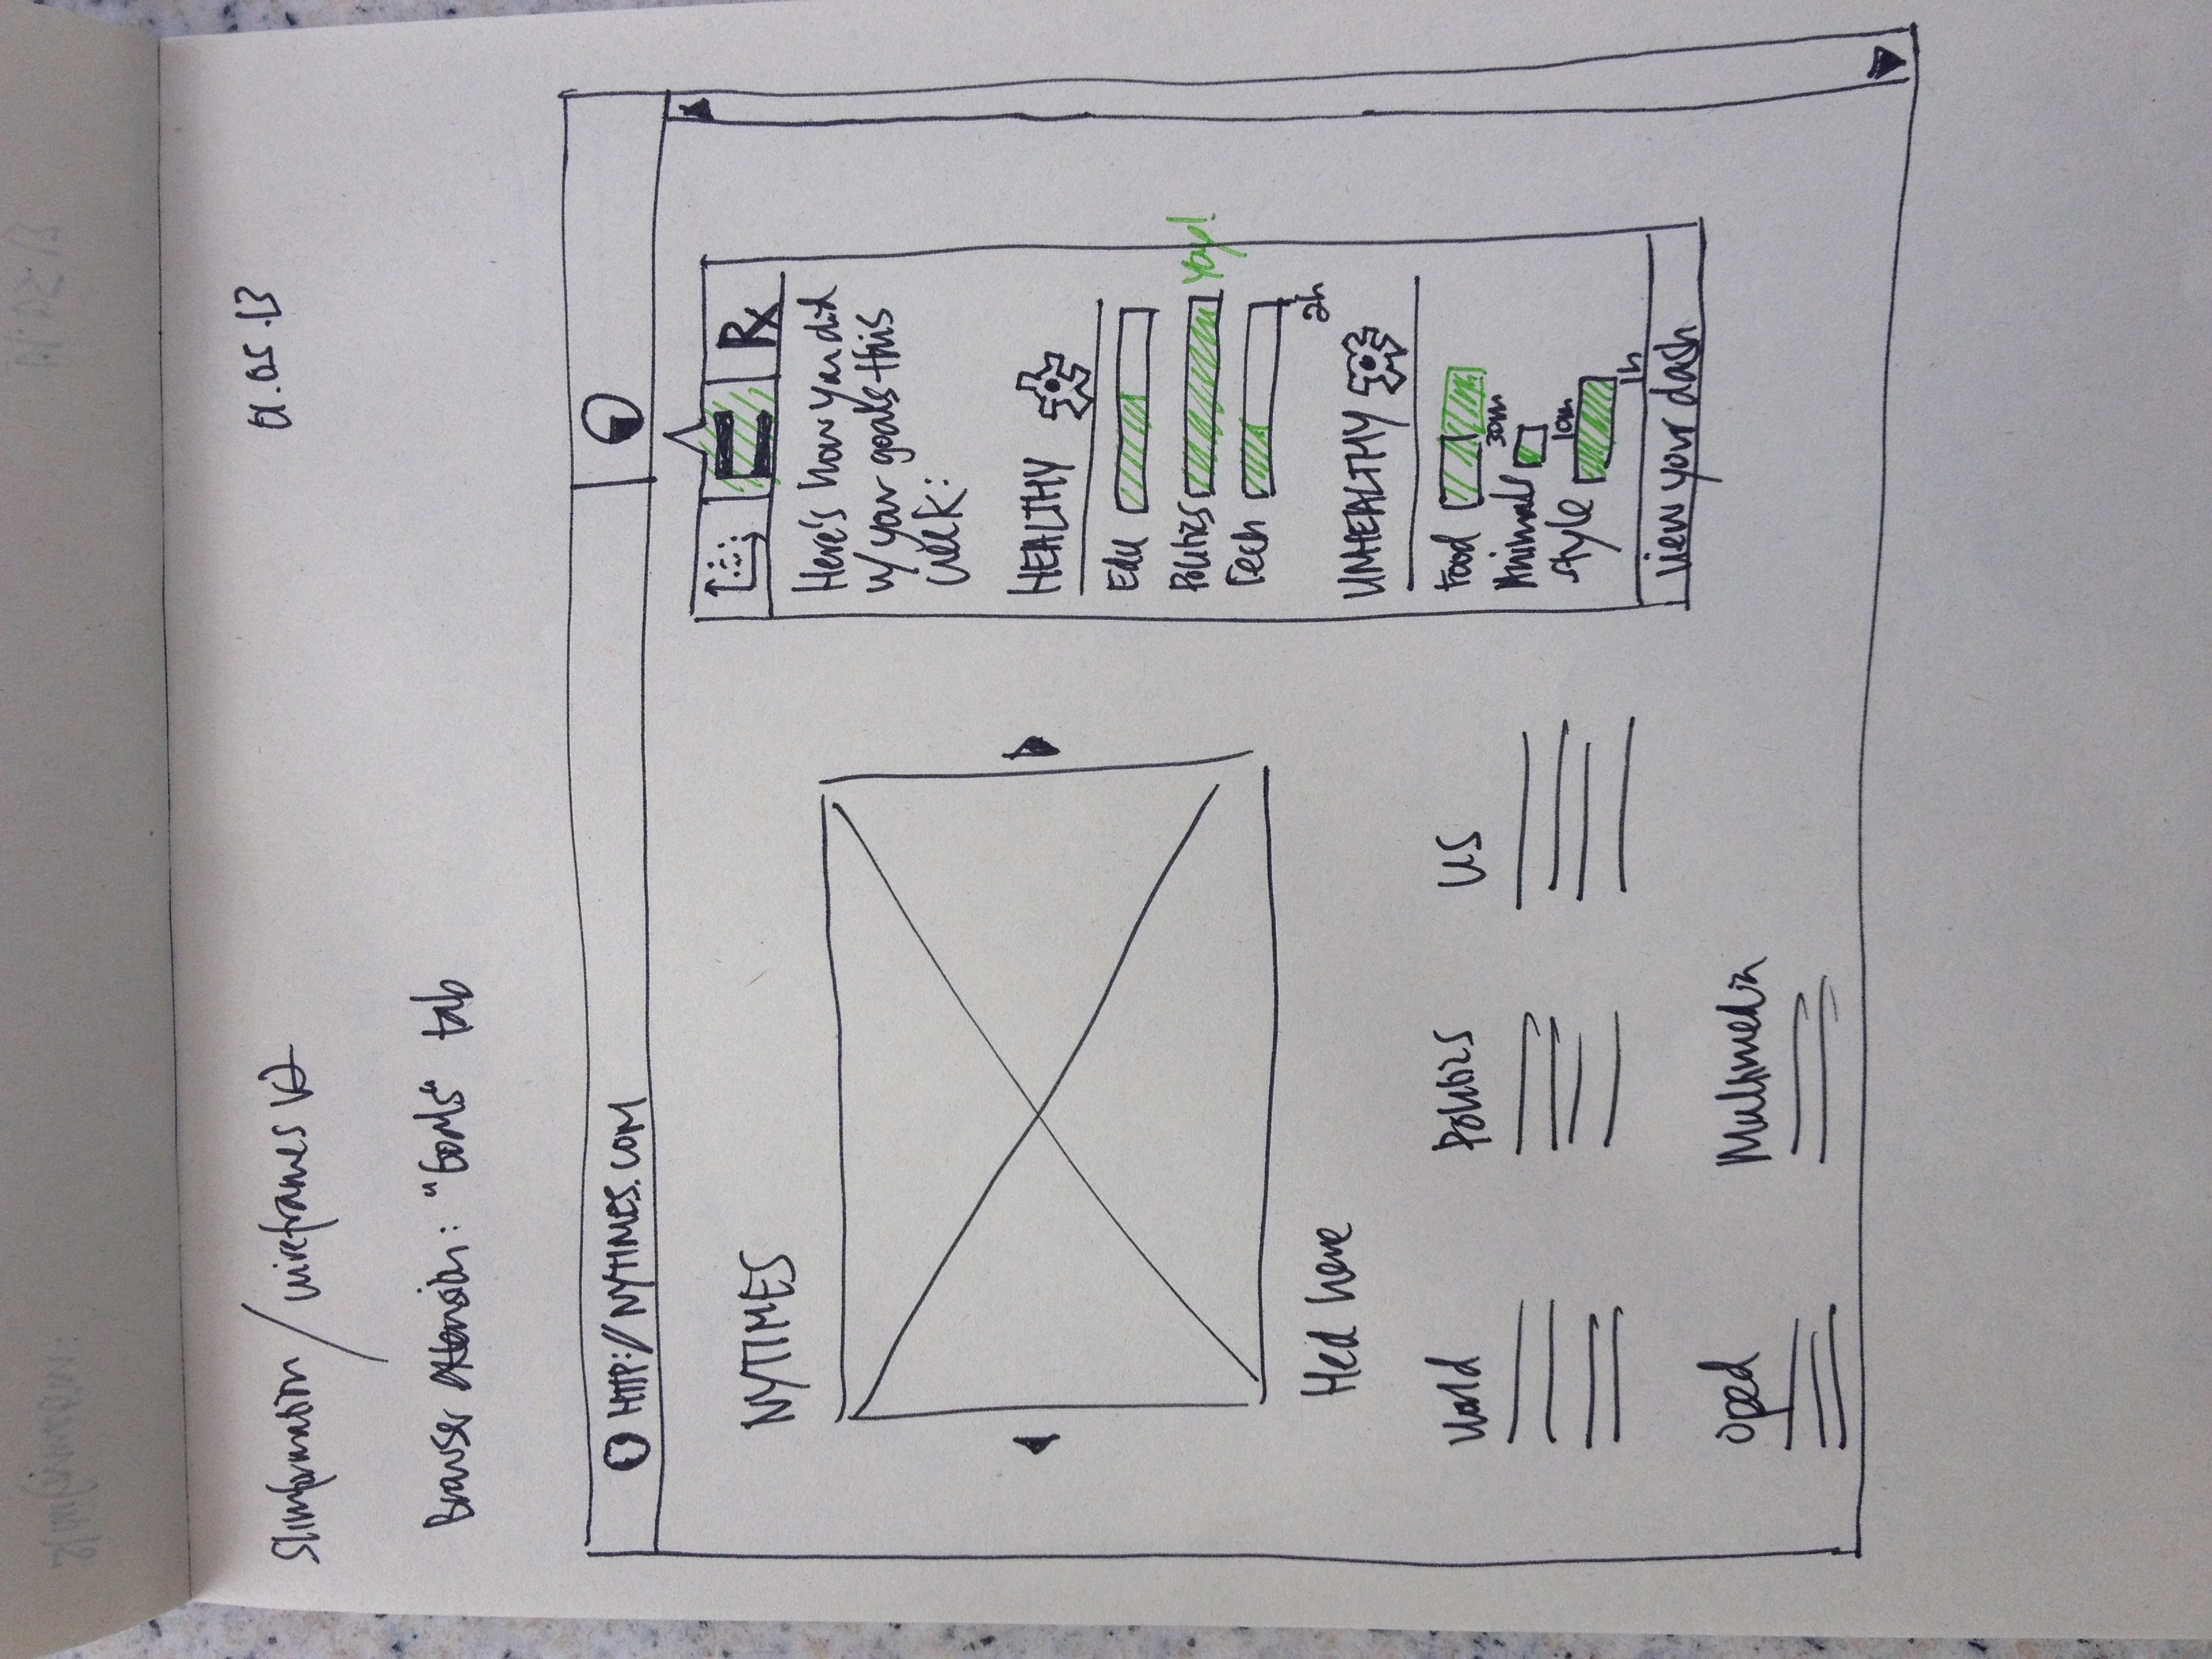 Slimformation / wireframes v2
01.05.13
Browser extension: "Goals" tab
HTTP://NYTIMES.COM
NYTIMES
Hed here
World
Politics
US
Oped
Multimedia
Rx
Here's how you did
w/ your goals this
week:
HEALTHY
Edu
Politics
Yay!
Tech
2h
UNHEALTHY
Food
30m
Animals
10m
Style
1h
View your dash